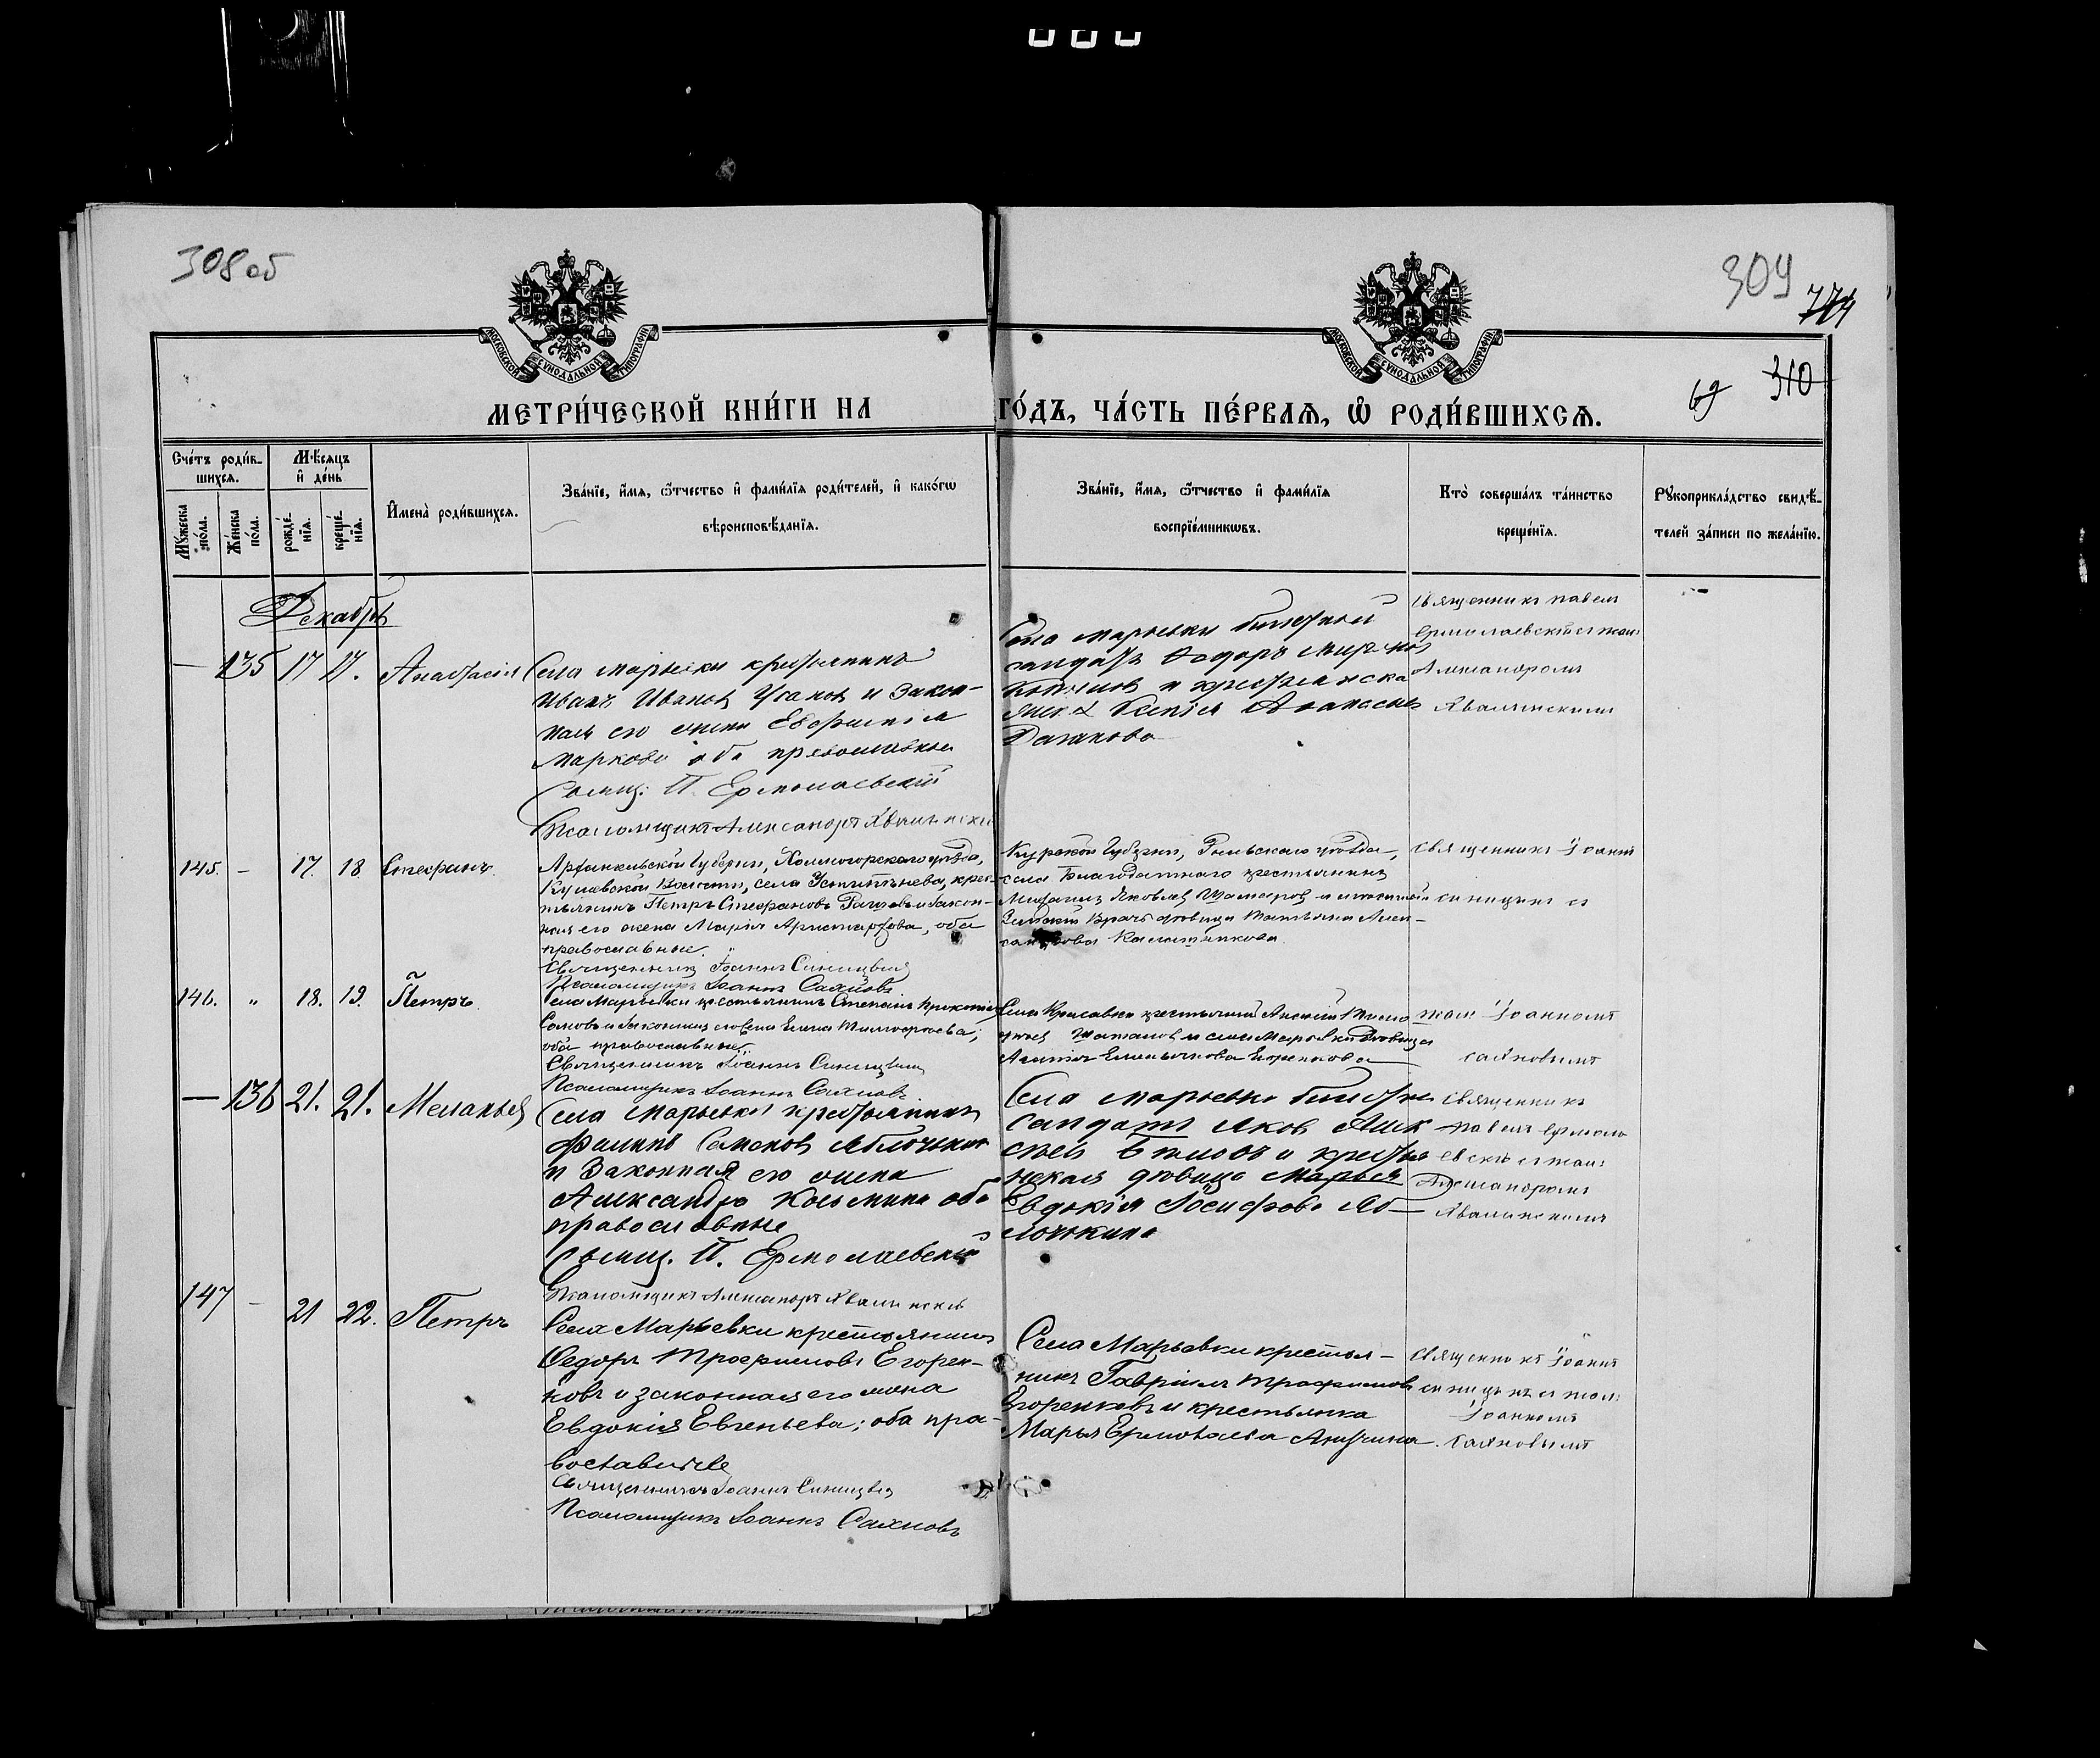 308 об
309
774
310
69
МОСКОВСКОЙ СѴНОДАЛЬНОЙ ТИПОГРАФІИ
МОСКОВСКОЙ СѴНОДАЛЬНОЙ ТИПОГРАФІИ
МЕТРИ́ЧЕСКОЙ КНИ́ГИ НА ГО́ДЪ, ЧА́СТЬ ПЕ́РВАѦ, Ѡ҆ РОДИ́ВШИХСѦ.
Сче́тъ роди́в-
шихсѧ.
Мꙋ́жеска по́ла.
Же́нска по́ла.
М҆ѣ́сѧцъ и҆ де́нь
рожде́-
нїѧ.
креще́-
нїѧ.
И҆мена̀ роди́вшихсѧ.
Зва́нїе, и҆́мѧ, ѻ҆́тчество и҆ фами́лїѧ роди́телей, и҆ како́гѡ
вѣроисповѣ́данїѧ.
Зва́нїе, и҆́мѧ, ѻ҆́тчество и҆ фами́лїѧ
воспрїе́мникѡвъ.
Кто̀ соверша́лъ та́инство
креще́нїѧ.
Рꙋкоприкла́дство свидѣ́-
телей за́писи по жела́нїю.
Декабрь
— 135 17 17. Анастасія
Села Марьевки крестьянинъ
Иванъ Ивановъ Усановъ и закон-
ная его жена Евфросинія
Маркова оба православные
Свящ. П. Ермолаевскій
Псаломщикъ Александръ Хвалынскій
Села Марьевки билетный
солдатъ Ѳедоръ
и крестьянска
Ксенія
Священникъ Павелъ
Ермолаевскій съ псал:
Александромъ
Хвалынскимъ
145. — 17. 18. Стефанъ.
Архангельской Губерніи, Холмогорскаго уѣзда,
волости, села крес-
тьянинъ Петръ Стефановъ и закон-
ная его жена Марія Аристархова, оба
православные.
Священникъ Іоаннъ Синицкій
Псаломщикъ Іоаннъ Саяновъ
Курской Губерніи, Рыльскаго уѣзда,
села Благодатнаго крестьянинъ
Михаилъ Яковлевъ
Земскій Врачъ дѣвица Татьяна Алек-
сандрова Калашникова
Священникъ Іоаннъ
Синицкій съ
146. „ 18. 19. Петръ.
Села Марьевки крестьянинъ Степанъ Прокопіевъ
и законная его жена Елена Тимофеева;
оба православные.
Священникъ Іоаннъ Синицкій
Псаломщикъ Іоаннъ Саяновъ.
крестьянинъ
Шаталовъ и села Марьевки дѣвица
Емельянова Егоренкова
псал: Іоанномъ
Саяновымъ
— 136 21. 21. Меланья
Села Марьевки крестьянинъ
Филипъ Яблочкинъ
и законная его жена
Александра Козьмина оба
православные
Свящ. П. Ермолаевскій
Псаломщикъ Александръ Хвалынскій
Села Марьевки билетный
солдатъ Яковъ Алек
сѣевъ и крестья
нская дѣвица Марья
Евдокія Іосифова Яб—
лочкина
Священникъ
Павелъ Ермола
евскій съ псал:
Александромъ
Хвалынскимъ
147 — 21 22. Петръ
Села Марьевки крестьянинъ
Ѳедоръ Трофимовъ Егорен-
ковъ и законная его жена
Евдокія Евгеньева; оба пра-
вославные
Священникъ Іоаннъ Синицкій
Псаломщикъ Іоаннъ Саяновъ
Села Марьевки крестья-
нинъ Гавріилъ Трофимовъ
Егоренковъ и крестьянка
Марья Ермолаева
Священникъ Іоаннъ
Синицкій съ псал:
Іоанномъ
Саяновымъ